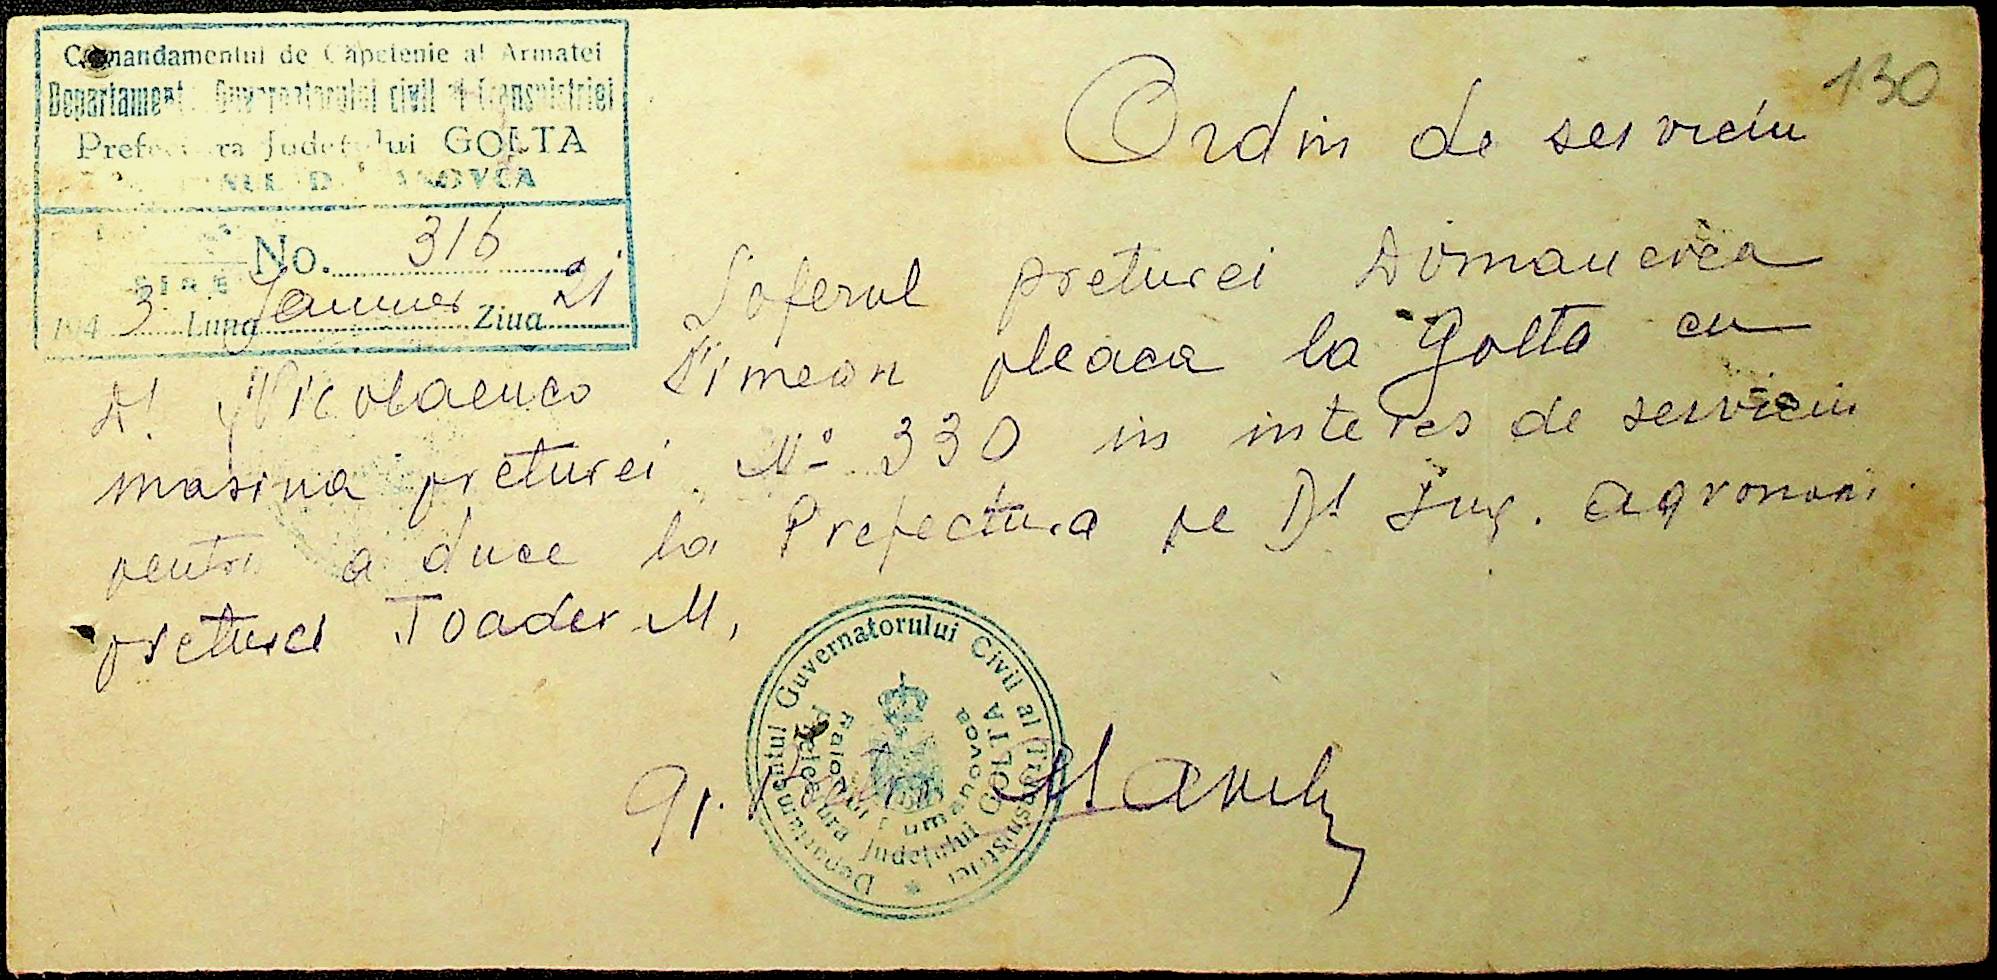 Comandamentul de Căpetenie al Armatei
Departamentul Guvernatorului civil al Transnistriei
Prefectura Judeţului GOLTA
No. 316
1943 Luna Januuer Ziua 21
130
Ordin de serviciu
Soferul preturei Domanevca
Dl Nicolaenco Simeon pleaca la Golta cu
masina preturei No 330 in interes de serviciu
pentru a duce la Prefectura pe Dl Ing. agronom
preturei Toader M,
Departamentul Guvernatorului Civil al Transnistriei
Prefectura Judeţului GOLTA
Raionul Domanovca